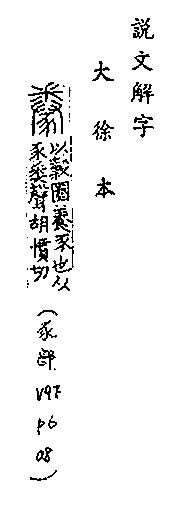 說文解字
大徐本
豢
以穀圈養豕也从
豕𢍏聲胡慣切
(豕部 V9下 P6 08)